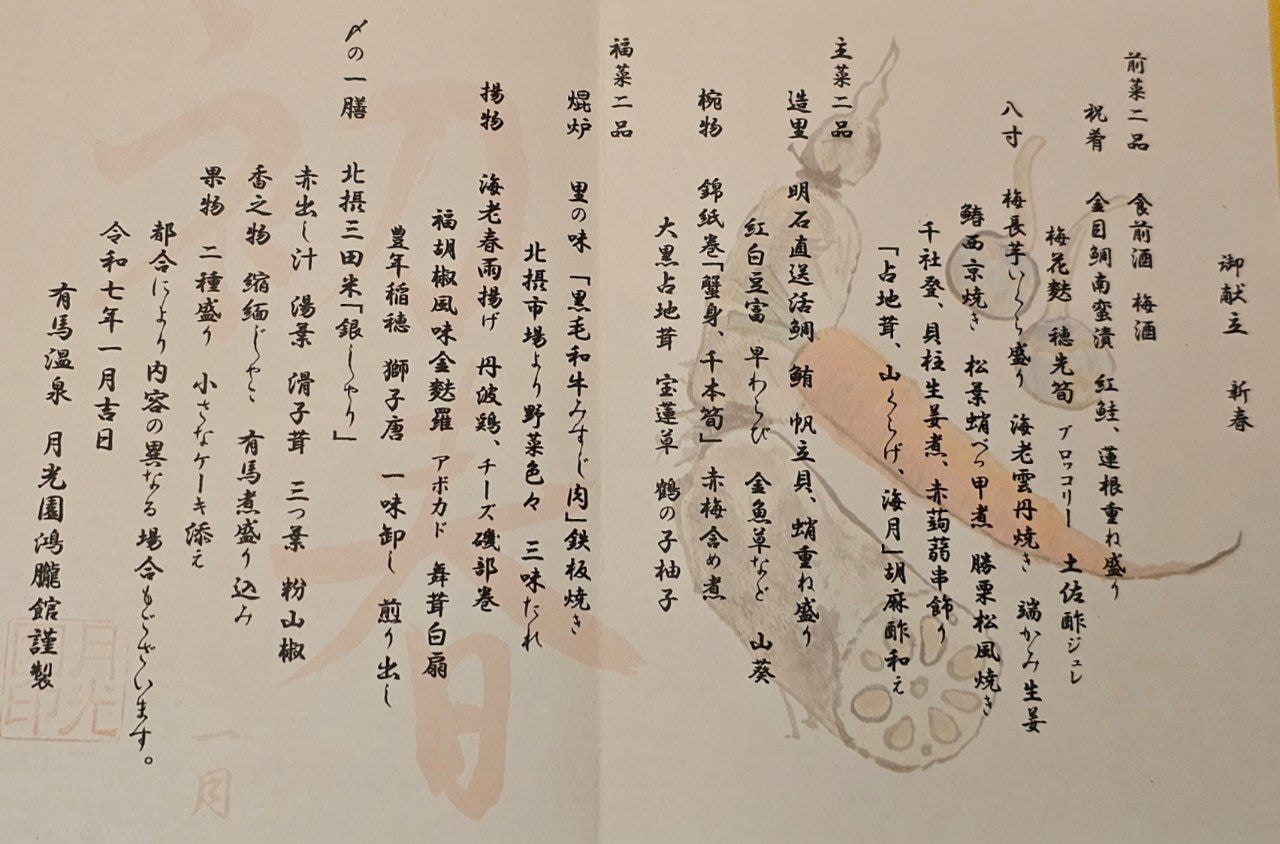 御献立 新春
前菜二品 食前酒 梅酒
祝肴 金目鯛南蛮漬 紅鮭、蓮根重ね盛り
梅花麩 穂先筍 ブロッコリー 土佐酢ジュレ
八寸 梅長芋いくら盛り 海老雲丹焼き 端かみ生姜
鰆西京焼き 松葉蛸べっ甲煮 勝栗松風焼き
千社登、貝柱生姜煮、赤蒟蒻串飾り
「占地茸、山くらげ、海月」胡麻酢和え
主菜二品
造里 明石直送活鯛 鮪 帆立貝、蛸重ね盛り
紅白豆富 早わらび 金魚草など 山葵
椀物 錦紙巻「蟹身、千本筍」赤梅含め煮
大黒占地茸 宝蓮草 鶴の子柚子
福菜二品
焜炉 里の味「黒毛和牛みすじ肉」鉄板焼き
北摂市場より野菜色々 三味たれ
揚物 海老春雨揚げ 丹波鶏、チーズ磯部巻
福胡椒風味金麩羅 アボカド 舞茸白扇
豊年稲穂 獅子唐 一味卸し 煎り出し
〆の一膳 北摂三田米「銀しゃり」
赤出し汁 湯葉 滑子茸 三つ葉 粉山椒
香之物 縮緬じゃこ 有馬煮盛り込み
果物 二種盛り 小さなケーキ添え
都合により内容の異なる場合もございます。
令和七年一月吉日
有馬温泉 月光園鴻朧館謹製
初春
一月